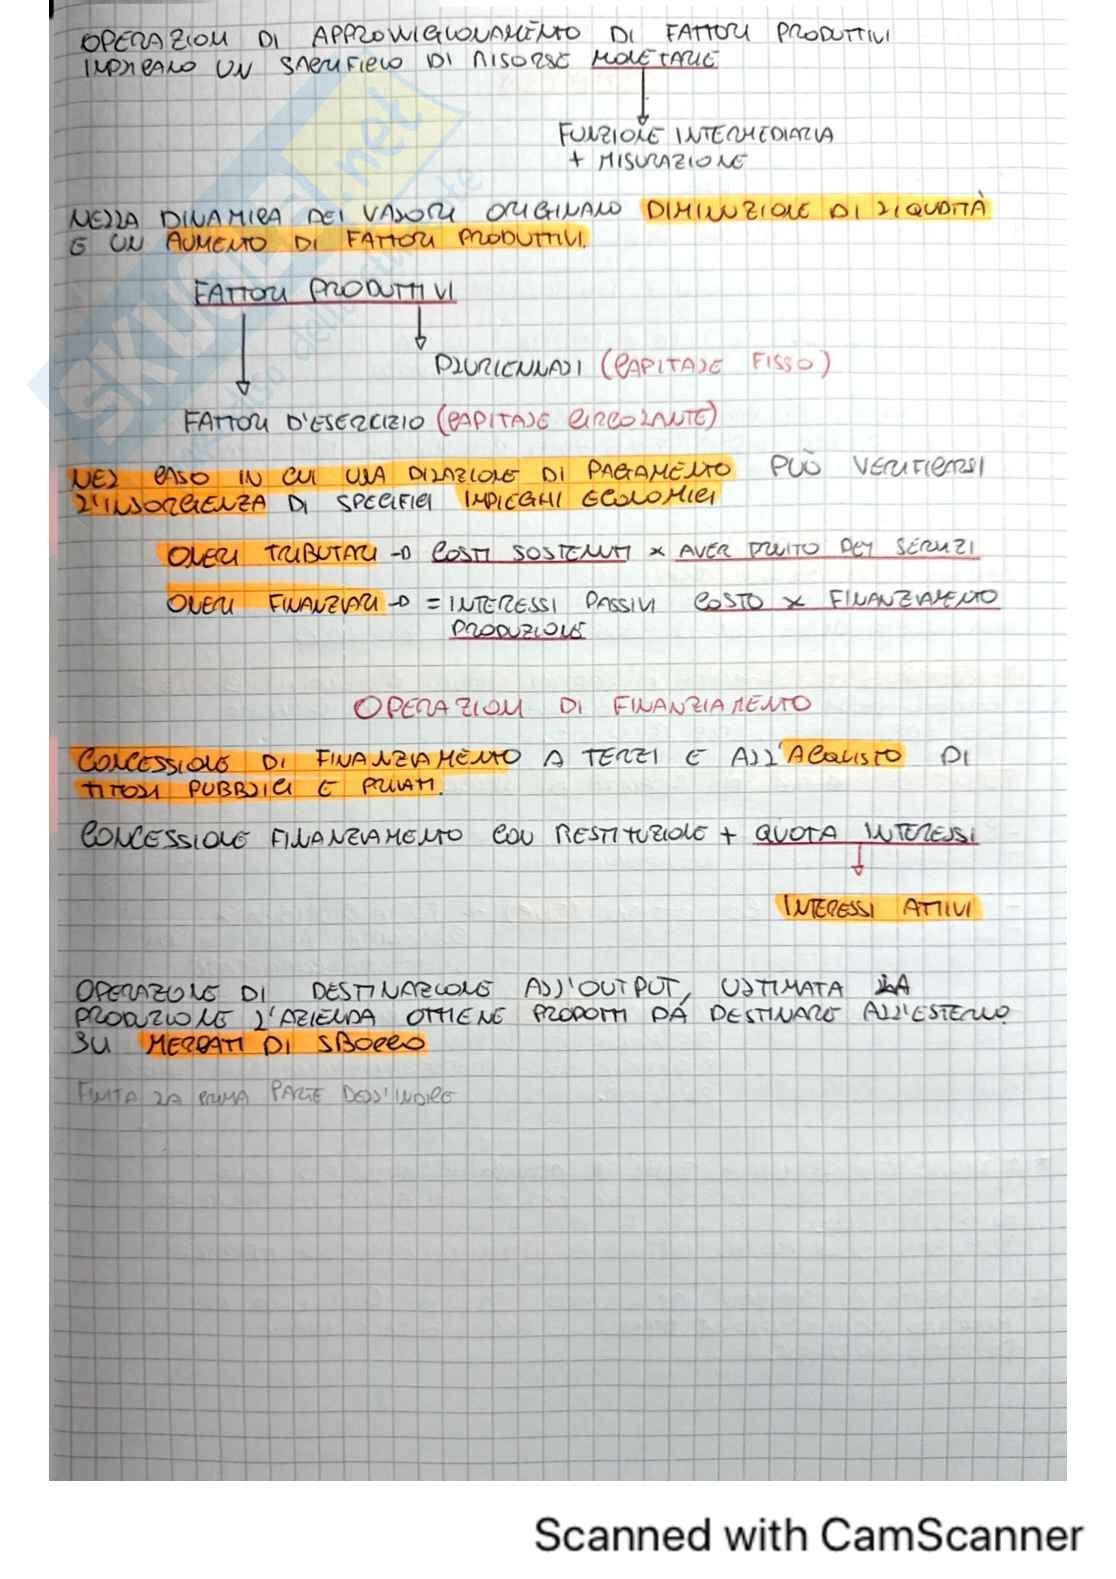 OPERAZIONI DI APPROVVIGIONAMENTO DI FATTORI PRODUTTIVI
IMPLICANO UN SACRIFICIO DI RISORSE MONETARIE
FUNZIONE INTERMEDIARIA
+ MISURAZIONE
NELLA DINAMICA DEI VALORI ORIGINANO DIMINUZIONE DI LIQUDITÀ
E UN AUMENTO DI FATTORI PRODUTTIVI.
FATTORI PRODUTTIVI
PLURIENNALI (CAPITALE FISSO)
FATTORI D'ESERCIZIO (CAPITALE CIRCOLANTE)
NEL CASO IN CUI UNA DILAZIONE DI PAGAMENTO PUÒ VERIFICARSI
L'INSORGENZA DI SPECIFICI IMPIEGHI ECONOMICI
ONERI TRIBUTARI → COSTI SOSTENUTI x AVER FRUITO DEI SERVIZI
ONERI FINANZIARI → = INTERESSI PASSIVI COSTO x FINANZIAMENTO
PRODUZIONE
OPERAZIONI DI FINANZIAMENTO
CONCESSIONE DI FINANZIAMENTO A TERZI E ALL'ACQUISTO DI
TITOLI PUBBLICI E PRIVATI.
CONCESSIONE FINANZIAMENTO CON RESTITUZIONE + QUOTA INTERESSI
INTERESSI ATTIVI
OPERAZIONE DI DESTINAZIONE ALL'OUTPUT, ULTIMATA LA
PRODUZIONE L'AZIENDA OTTIENE PRODOTTI DA DESTINARE ALL'ESTERNO
SU MERCATI DI SBOCCO
FINITA LA PRIMA PARTE DELL'INDICE
SKUOLA.net
Scanned with CamScanner